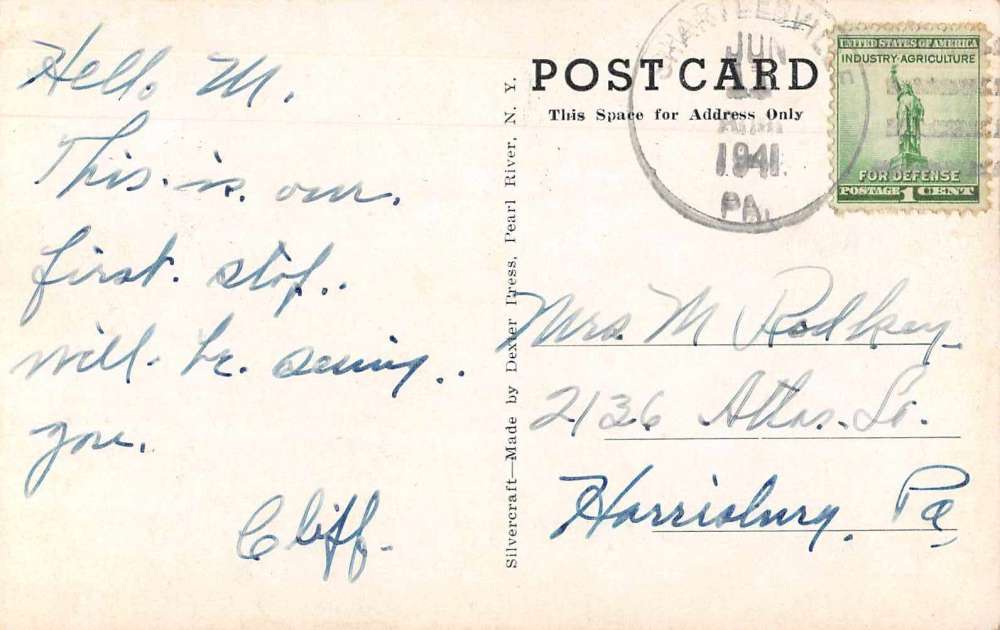 Hello M.
This. is. our.
first. stop..
will. be. seeing..
you.
Cliff.
Silvercraft—Made by Dexter Press, Pearl River, N. Y.
POST CARD
This Space for Address Only
JUN
1941
PA.
UNITED STATES OF AMERICA
INDUSTRY·AGRICULTURE
FOR DEFENSE
POSTAGE 1 CENT
Mrs M Rodkey.
2136 Atlas. St.
Harrisburg, Pa